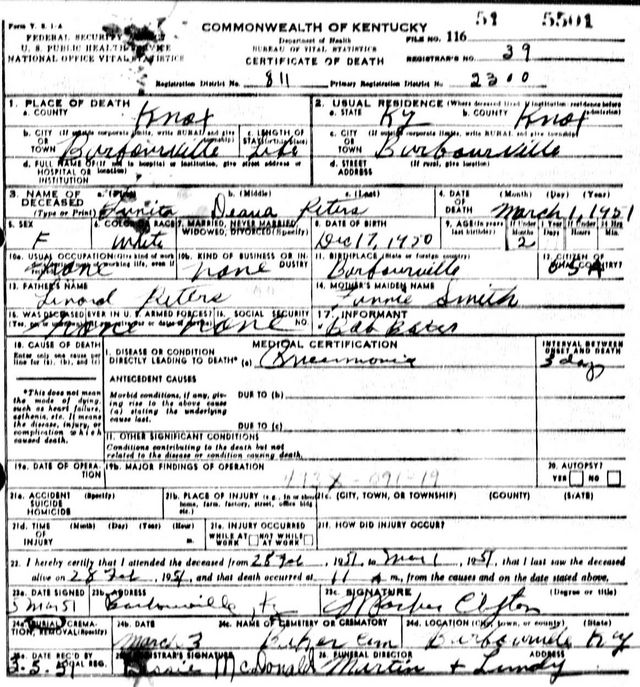 Form V. S. 1-A
FEDERAL SECURITY
U. S. PUBLIC HEALTH SERVICE
NATIONAL OFFICE VITAL STATISTICS
COMMONWEALTH OF KENTUCKY
Department of Health
BUREAU OF VITAL STATISTICS
CERTIFICATE OF DEATH
FILE NO. 116 51 5501
REGISTRAR'S NO. 39
Registration District No. 811 Primary Registration District No. 2300
1. PLACE OF DEATH
a. COUNTY Knox
b. CITY OR TOWN Barbourville
c. LENGTH OF STAY (in this place) Life
d. FULL NAME OF HOSPITAL OR INSTITUTION (If not in hospital or institution, give street address or location)
2. USUAL RESIDENCE (Where deceased lived. If institution: residence before admission)
a. STATE Ky b. COUNTY Knox
c. CITY OR TOWN Barbourville
d. STREET ADDRESS (If rural, give location)
3. NAME OF DECEASED (Type or Print)
a. (First) b. (Middle) c. (Last)
Deana Peters
4. DATE OF DEATH (Month) (Day) (Year)
March 1, 1951
5. SEX F
6. COLOR OR RACE White
7. MARRIED, NEVER MARRIED, WIDOWED, DIVORCED (Specify)
8. DATE OF BIRTH Dec 17, 1950
9. AGE (In years last birthday) If Under 1 Year Months 2 Days If Under 24 Hrs. Hours Min.
10a. USUAL OCCUPATION None
10b. KIND OF BUSINESS OR INDUSTRY None
11. BIRTHPLACE (State or foreign country) Barbourville
12. CITIZEN OF WHAT COUNTRY? USA
13. FATHER'S NAME
Peters
14. MOTHER'S MAIDEN NAME
Smith
15. WAS DECEASED EVER IN U. S. ARMED FORCES? None
16. SOCIAL SECURITY NO. None
17. INFORMANT
Bob Baker
18. CAUSE OF DEATH
Enter only one cause per line for (a), (b), and (c)
*This does not mean the mode of dying, such as heart failure, asthenia, etc. It means the disease, injury, or complication which caused death.
MEDICAL CERTIFICATION
I. DISEASE OR CONDITION DIRECTLY LEADING TO DEATH* (a) Pneumonia
INTERVAL BETWEEN ONSET AND DEATH
3 days
ANTECEDENT CAUSES
Morbid conditions, if any, giving rise to the above cause (a) stating the underlying cause last.
DUE TO (b)
DUE TO (c)
II. OTHER SIGNIFICANT CONDITIONS
Conditions contributing to the death but not related to the disease or condition causing death.
19a. DATE OF OPERATION
19b. MAJOR FINDINGS OF OPERATION
20. AUTOPSY?
YES NO
21a. ACCIDENT SUICIDE HOMICIDE (Specify)
21b. PLACE OF INJURY (e.g., in or about home, farm, factory, street, office bldg., etc.)
21c. (CITY, TOWN, OR TOWNSHIP) (COUNTY) (STATE)
21d. TIME OF INJURY (Month) (Day) (Year) (Hour) m.
21e. INJURY OCCURRED
WHILE AT WORK NOT WHILE AT WORK
21f. HOW DID INJURY OCCUR?
22. I hereby certify that I attended the deceased from 28 Feb, 1951, to Mar 1, 1951, that I last saw the deceased
alive on 28 Feb, 1951, and that death occurred at 11 A m., from the causes and on the date stated above.
23a. DATE SIGNED
5 Mar 51
23b. ADDRESS
Barbourville, Ky
23c. SIGNATURE (Degree or title)
24a. BURIAL, CREMATION, REMOVAL (Specify)
24b. DATE
March 3
24c. NAME OF CEMETERY OR CREMATORY
Baker Cem
24d. LOCATION (City, town, or county) (State)
Barbourville Ky
25a. DATE REC'D BY LOCAL REG.
3-5-51
25b. REGISTRAR'S SIGNATURE
Bessie McDonald
26. FUNERAL DIRECTOR ADDRESS
Martin + Lundy